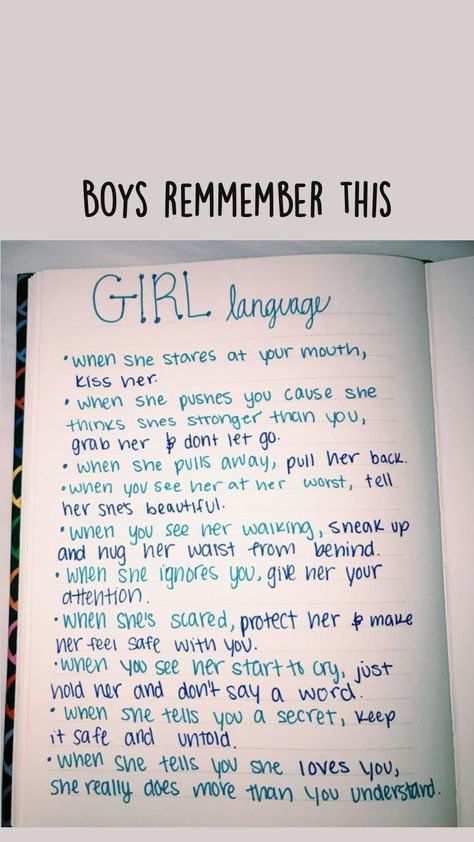 BOYS REMMEMBER THIS
GIRL language
• when she stares at your mouth,
kiss her.
• when she pushes you cause she
thinks shes stronger than you,
grab her & dont let go.
• when she pulls away, pull her back.
• when you see her at her worst, tell
her she's beautiful.
• when you see her walking, sneak up
and hug her waist from behind.
• when she ignores you, give her your
attention.
• when she's scared, protect her & make
her feel safe with you.
• when you see her start to cry, just
hold her and don't say a word.
• when she tells you a secret, keep
it safe and untold.
• when she tells you she loves you,
she really does more than you understand.